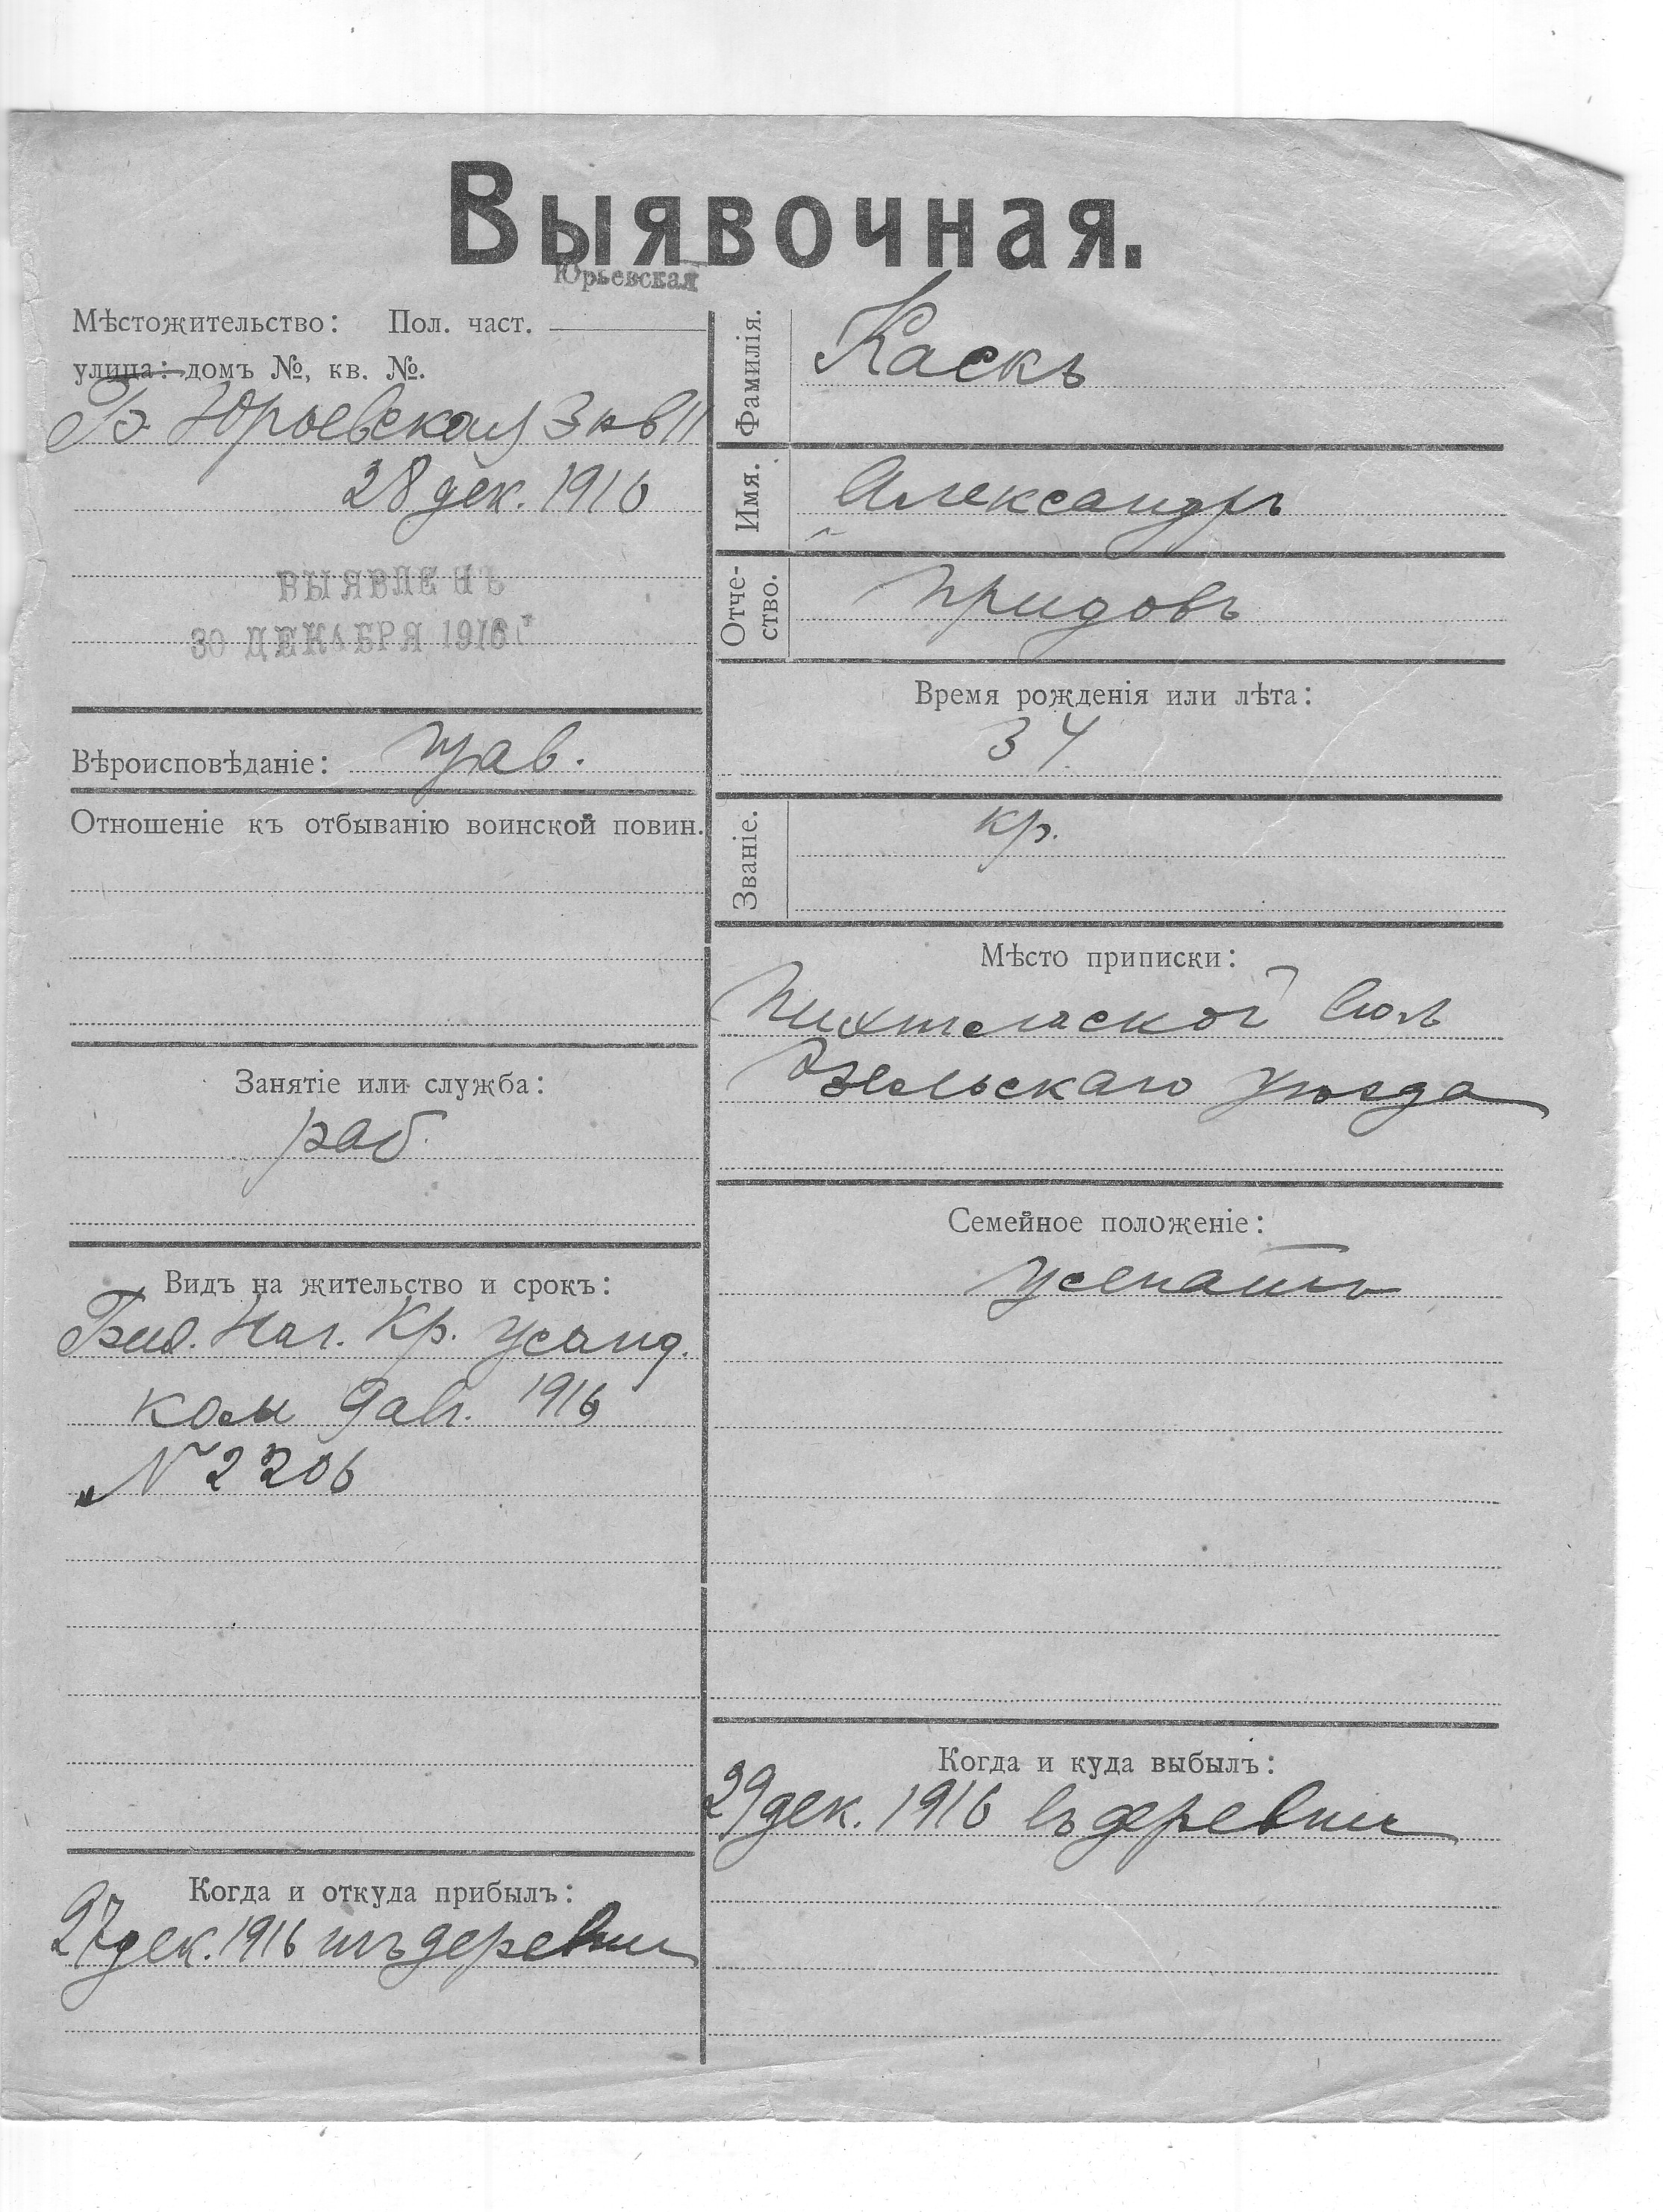 Выявочная.
Юрьевская
Мѣстожительство: Пол. част.
улица: домъ №, кв. №.
Б. Юрьевская 3 кв 11
28 дек. 1916
ВЫЯВЛЕНЪ
30 ДЕКАБРЯ 1916 Г
Вѣроисповѣданіе: Прав.
Отношеніе къ отбыванію воинской повин.
Занятіе или служба:
раб.
Видъ на жительство и срокъ:
Нач. Кр.
9 авг. 1916
№ 2206
Когда и откуда прибылъ:
27 дек. 1916 изъ деревни
Фамилія. Каскъ
Имя. Александръ
Отчество. Придовъ
Время рожденія или лѣта:
34
Званіе. кр.
Мѣсто приписки:
Пихтельской Вол
Эзельскаго уѣзда
Семейное положеніе:
женатъ
Когда и куда выбылъ:
29 дек. 1916 въ деревню